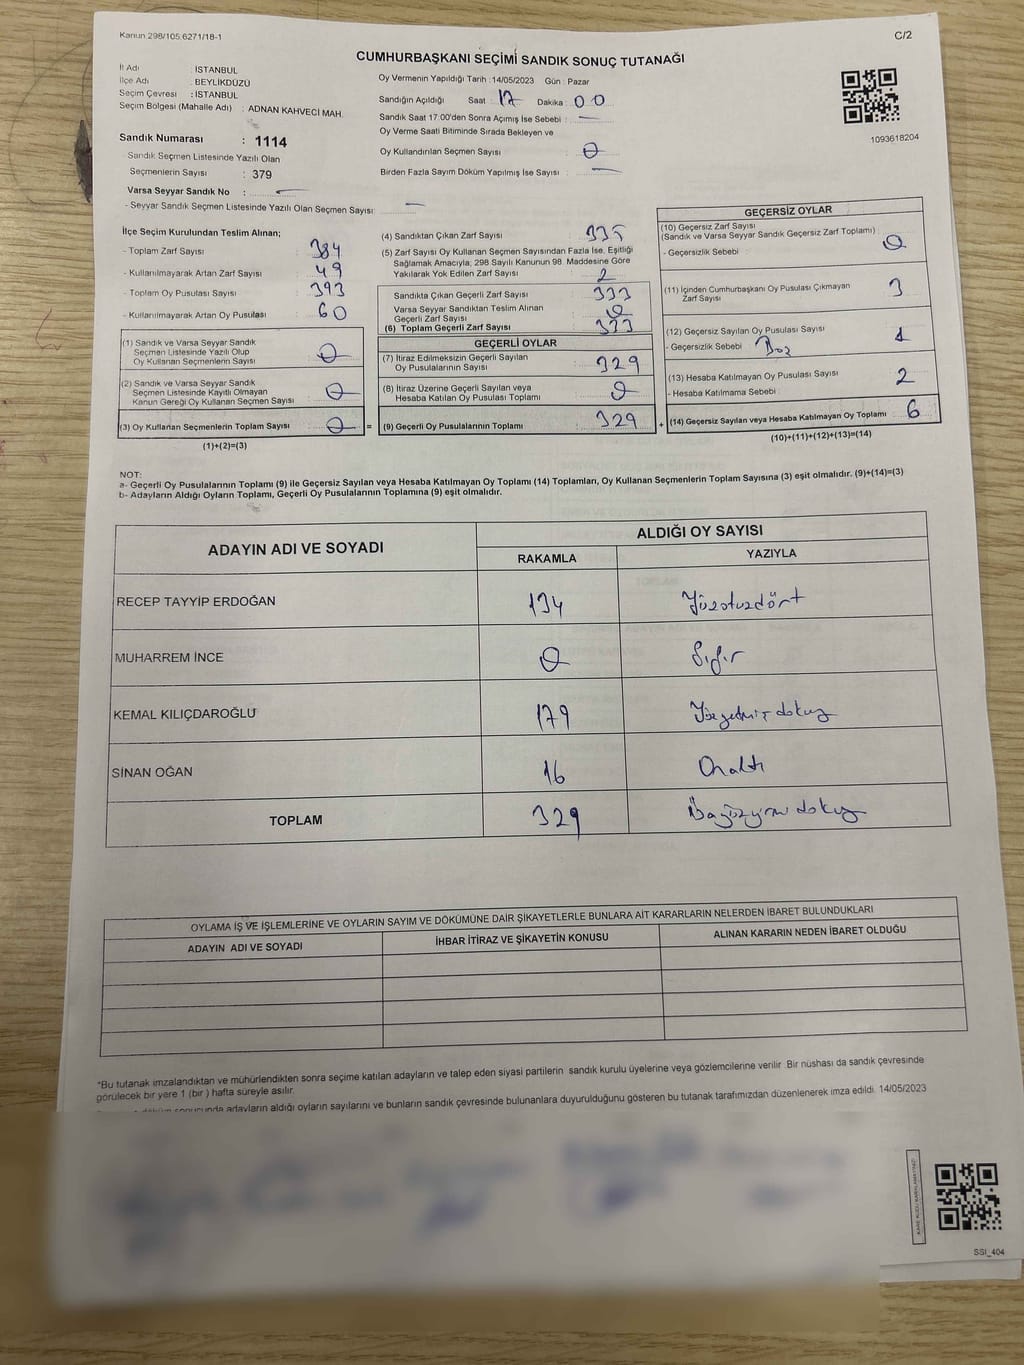 Kanun.298/105.6271/18-1
C/2
CUMHURBAŞKANI SEÇİMİ SANDIK SONUÇ TUTANAĞI
İl Adı : İSTANBUL
İlçe Adı : BEYLİKDÜZÜ
Seçim Çevresi : İSTANBUL
Seçim Bölgesi (Mahalle Adı) : ADNAN KAHVECİ MAH.
Sandık Numarası : 1114
Sandık Seçmen Listesinde Yazılı Olan
Seçmenlerin Sayısı : 379
Varsa Seyyar Sandık No : —
- Seyyar Sandık Seçmen Listesinde Yazılı Olan Seçmen Sayısı: —
Oy Vermenin Yapıldığı Tarih :14/05/2023 Gün : Pazar
Sandığın Açıldığı Saat : 17 Dakika : 00
Sandık Saat 17.00'den Sonra Açılmış İse Sebebi : —
Oy Verme Saati Bitiminde Sırada Bekleyen ve
Oy Kullandırılan Seçmen Sayısı : 0
Birden Fazla Sayım Döküm Yapılmış İse Sayısı : —
1093618204
İlçe Seçim Kurulundan Teslim Alınan;
- Toplam Zarf Sayısı : 384
- Kullanılmayarak Artan Zarf Sayısı : 49
- Toplam Oy Pusulası Sayısı : 393
- Kullanılmayarak Artan Oy Pusulası : 60
(1) Sandık ve Varsa Seyyar Sandık
Seçmen Listesinde Yazılı Olup
Oy Kullanan Seçmenlerin Sayısı : 0
(2) Sandık ve Varsa Seyyar Sandık
Seçmen Listesinde Kayıtlı Olmayan
Kanun Gereği Oy Kullanan Seçmen Sayısı : 0
(3) Oy Kullanan Seçmenlerin Toplam Sayısı : 0
(1)+(2)=(3)
(4) Sandıktan Çıkan Zarf Sayısı : 335
(5) Zarf Sayısı Oy Kullanan Seçmen Sayısından Fazla İse, Eşitliği
Sağlamak Amacıyla; 298 Sayılı Kanunun 98. Maddesine Göre
Yakılarak Yok Edilen Zarf Sayısı : 2
Sandıkta Çıkan Geçerli Zarf Sayısı : 333
Varsa Seyyar Sandıktan Teslim Alınan
Geçerli Zarf Sayısı : 0
(6) Toplam Geçerli Zarf Sayısı : 333
GEÇERLİ OYLAR
(7) İtiraz Edilmeksizin Geçerli Sayılan
Oy Pusulalarının Sayısı : 329
(8) İtiraz Üzerine Geçerli Sayılan veya
Hesaba Katılan Oy Pusulası Toplamı : 0
= (9) Geçerli Oy Pusulalarının Toplamı : 329
GEÇERSİZ OYLAR
(10) Geçersiz Zarf Sayısı
(Sandık ve Varsa Seyyar Sandık Geçersiz Zarf Toplamı) : 0
- Geçersizlik Sebebi :
(11) İçinden Cumhurbaşkanı Oy Pusulası Çıkmayan
Zarf Sayısı : 3
(12) Geçersiz Sayılan Oy Pusulası Sayısı : 1
- Geçersizlik Sebebi : Boş
(13) Hesaba Katılmayan Oy Pusulası Sayısı : 2
- Hesaba Katılmama Sebebi :
+ (14) Geçersiz Sayılan veya Hesaba Katılmayan Oy Toplamı : 6
(10)+(11)+(12)+(13)=(14)
NOT:
a- Geçerli Oy Pusulalarının Toplamı (9) ile Geçersiz Sayılan veya Hesaba Katılmayan Oy Toplamı (14) Toplamları, Oy Kullanan Seçmenlerin Toplam Sayısına (3) eşit olmalıdır. (9)+(14)=(3)
b- Adayların Aldığı Oyların Toplamı, Geçerli Oy Pusulalarının Toplamına (9) eşit olmalıdır.
ADAYIN ADI VE SOYADI
ALDIĞI OY SAYISI
RAKAMLA YAZIYLA
RECEP TAYYİP ERDOĞAN 134 Yüzotuzdört
MUHARREM İNCE 0 Sıfır
KEMAL KILIÇDAROĞLU 179 Yüzyetmiş dokuz
SİNAN OĞAN 16 Onaltı
TOPLAM 329 Üçyüzyirmi dokuz
OYLAMA İŞ VE İŞLEMLERİNE VE OYLARIN SAYIM VE DÖKÜMÜNE DAİR ŞİKAYETLERLE BUNLARA AİT KARARLARIN NELERDEN İBARET BULUNDUKLARI
ADAYIN ADI VE SOYADI İHBAR İTİRAZ VE ŞİKAYETİN KONUSU ALINAN KARARIN NEDEN İBARET OLDUĞU
*Bu tutanak imzalandıktan ve mühürlendikten sonra seçime katılan adayların ve talep eden siyasi partilerin sandık kurulu üyelerine veya gözlemcilerine verilir. Bir nüshası da sandık çevresinde
görülecek bir yere 1 (bir ) hafta süreyle asılır.
döküm sonucunda adayların aldığı oyların sayılarını ve bunların sandık çevresinde bulunanlara duyurulduğunu gösteren bu tutanak tarafımızdan düzenlenerek imza edildi. 14/05/2023
SSI_404